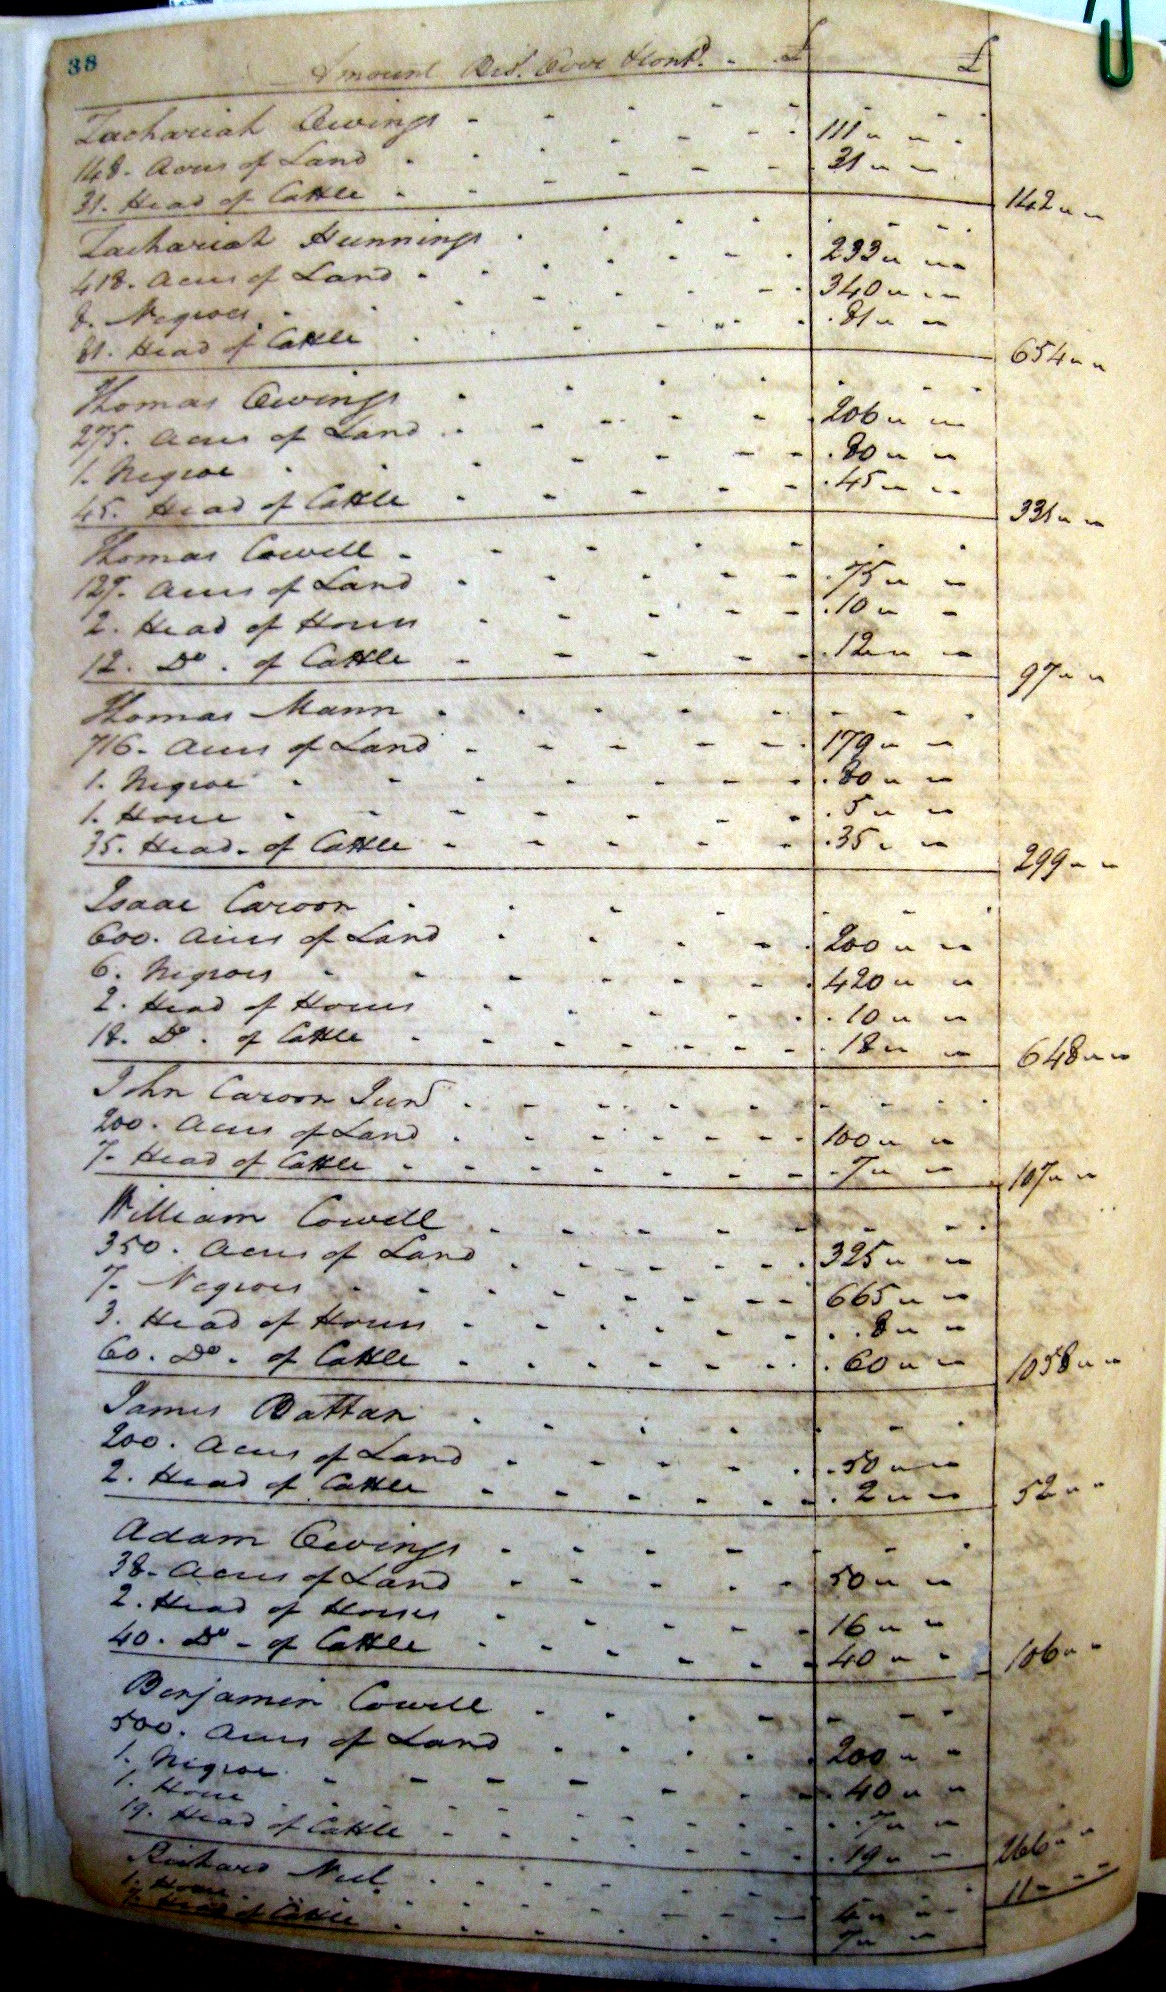 38
Amount Bro.t Over Cont.d £ £
Zachariah Owings
148. Acres of Land 111 " "
31. Head of Cattle 31 " " 142 " "
Zachariah Hunnings
418. Acres of Land 233 " "
8. Negroes 340 " "
81. Head of Cattle 81 " " 654 " "
Thomas Owings
275. Acres of Land 206 " "
1. Negroe 80 " "
45. Head of Cattle 45 " " 331 " "
Thomas Cowell
127. Acres of Land 75 " "
2. Head of Horses 10 " "
12. Do. of Cattle 12 " " 97 " "
Thomas Mann
716. Acres of Land 179 " "
1. Negroe 80 " "
1. Horse 5 " "
35. Head of Cattle 35 " " 299 " "
Isaac Caroon
600. Acres of Land 200 " "
6. Negroes 420 " "
2. Head of Horses 10 " "
18. Do. of Cattle 18 " " 648 " "
John Caroon Junr
200. Acres of Land 100 " "
7. Head of Cattle 7 " " 107 " "
William Cowell
350. Acres of Land 325 " "
7. Negroes 665 " "
3. Head of Horses 8 " "
60. Do. of Cattle 60 " " 1058 " "
James Battan
200. Acres of Land 50 " "
2. Head of Cattle 2 " " 52 " "
Adam Owings
38. Acres of Land 50 " "
2. Head of Horses 16 " "
40. Do. of Cattle 40 " " 106 " "
Benjamin Cowell
500. Acres of Land 200 " "
1. Negroe 40 " "
1. Horse 7 " "
19. Head of Cattle 19 " " 266 " "
Richard Neel
1. Horse 4 " "
7. Head of Cattle 7 " " 11 " "